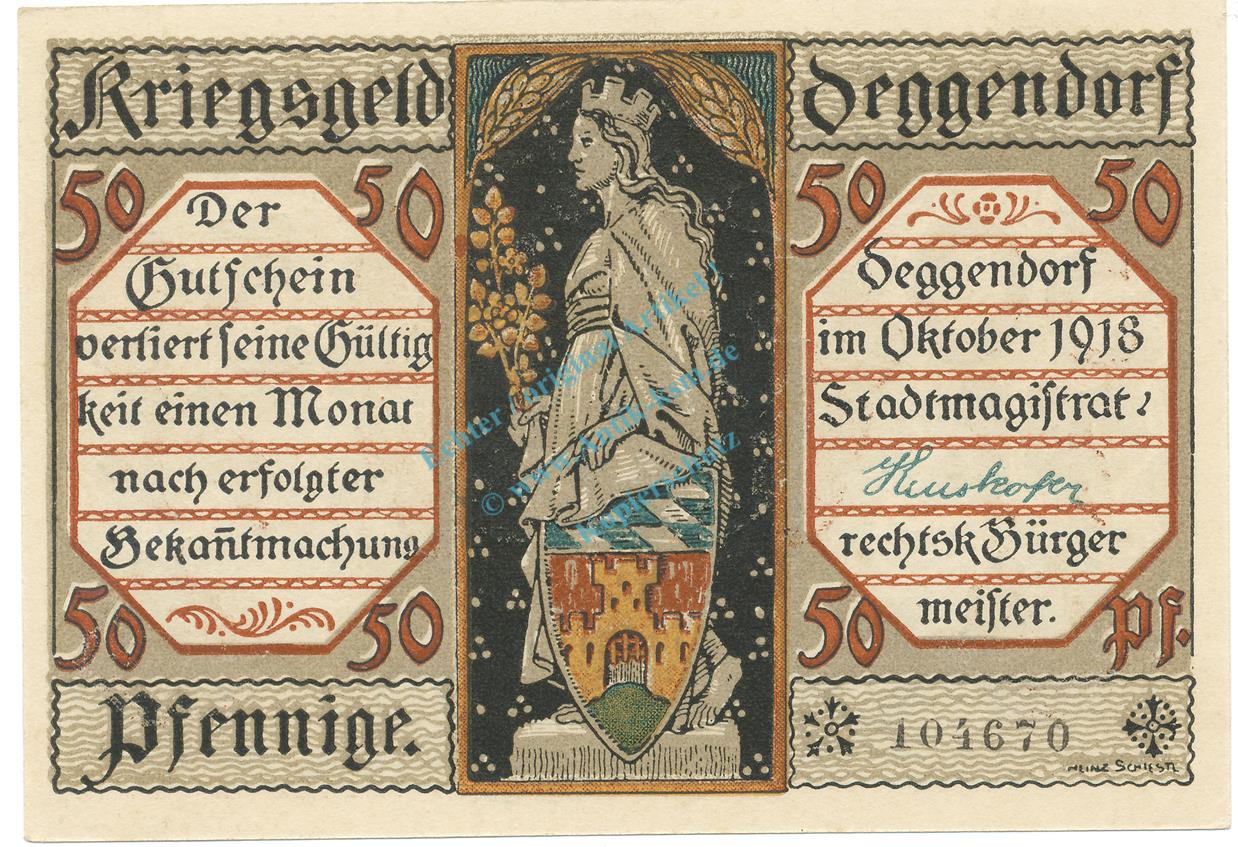 Kriegsgeld
Deggendorf
50 50
Der
Gutſchein
verliert ſeine Gültig
keit einen Monat
nach erfolgter
Bekan̄tmachung
50 50
Pfennige.
50 50
Deggendorf
im Oktober 1918
Stadtmagiſtrat:
rechtsk Bürger
meiſter.
50 Pf.
104670
HEINZ SCHIESTL
Echter (original Artikel)
© www.
Kopierschutz